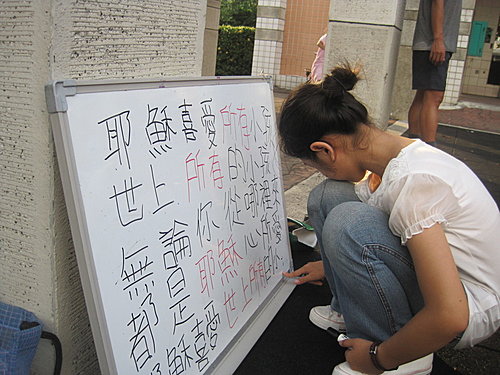 耶穌喜愛所有小孩
世上所有的小孩
無論你從哪裡來
都是耶穌心所愛
穌喜愛世上所有的小